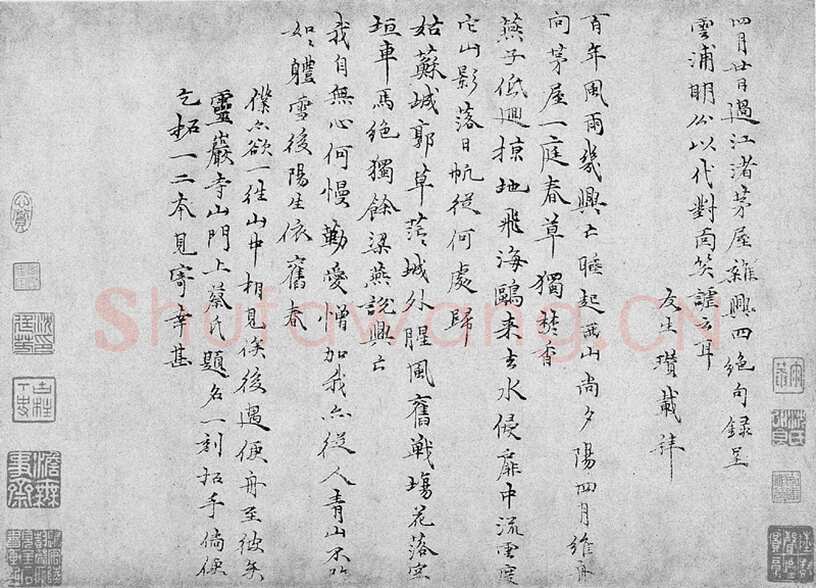 四月廿日過江渚茅屋雜興四絕句錄呈
雲浦明公以代對面笑謔云耳
友生瓚載拜
百年風雨幾興亡睡起西山尚夕陽四月維舟
向茅屋一庭春草獨焚香
燕子低迴掠地飛海鷗來去水侵扉中流雲度
它山影落日帆從何處歸
姑蘇城郭草茫〻城外腥風舊戰場花落空
垣車馬絕獨餘梁燕說興亡
我自無心何慢勤愛憎加我亦從人青山不改
如〻體雪後陽生依舊春
僕亦欲一往山中相見俟後遇便舟至彼矣
靈巖寺山門上蔡氏題名一刻拓手倘便
乞拓一二本見寄幸甚
Shufawang.CN